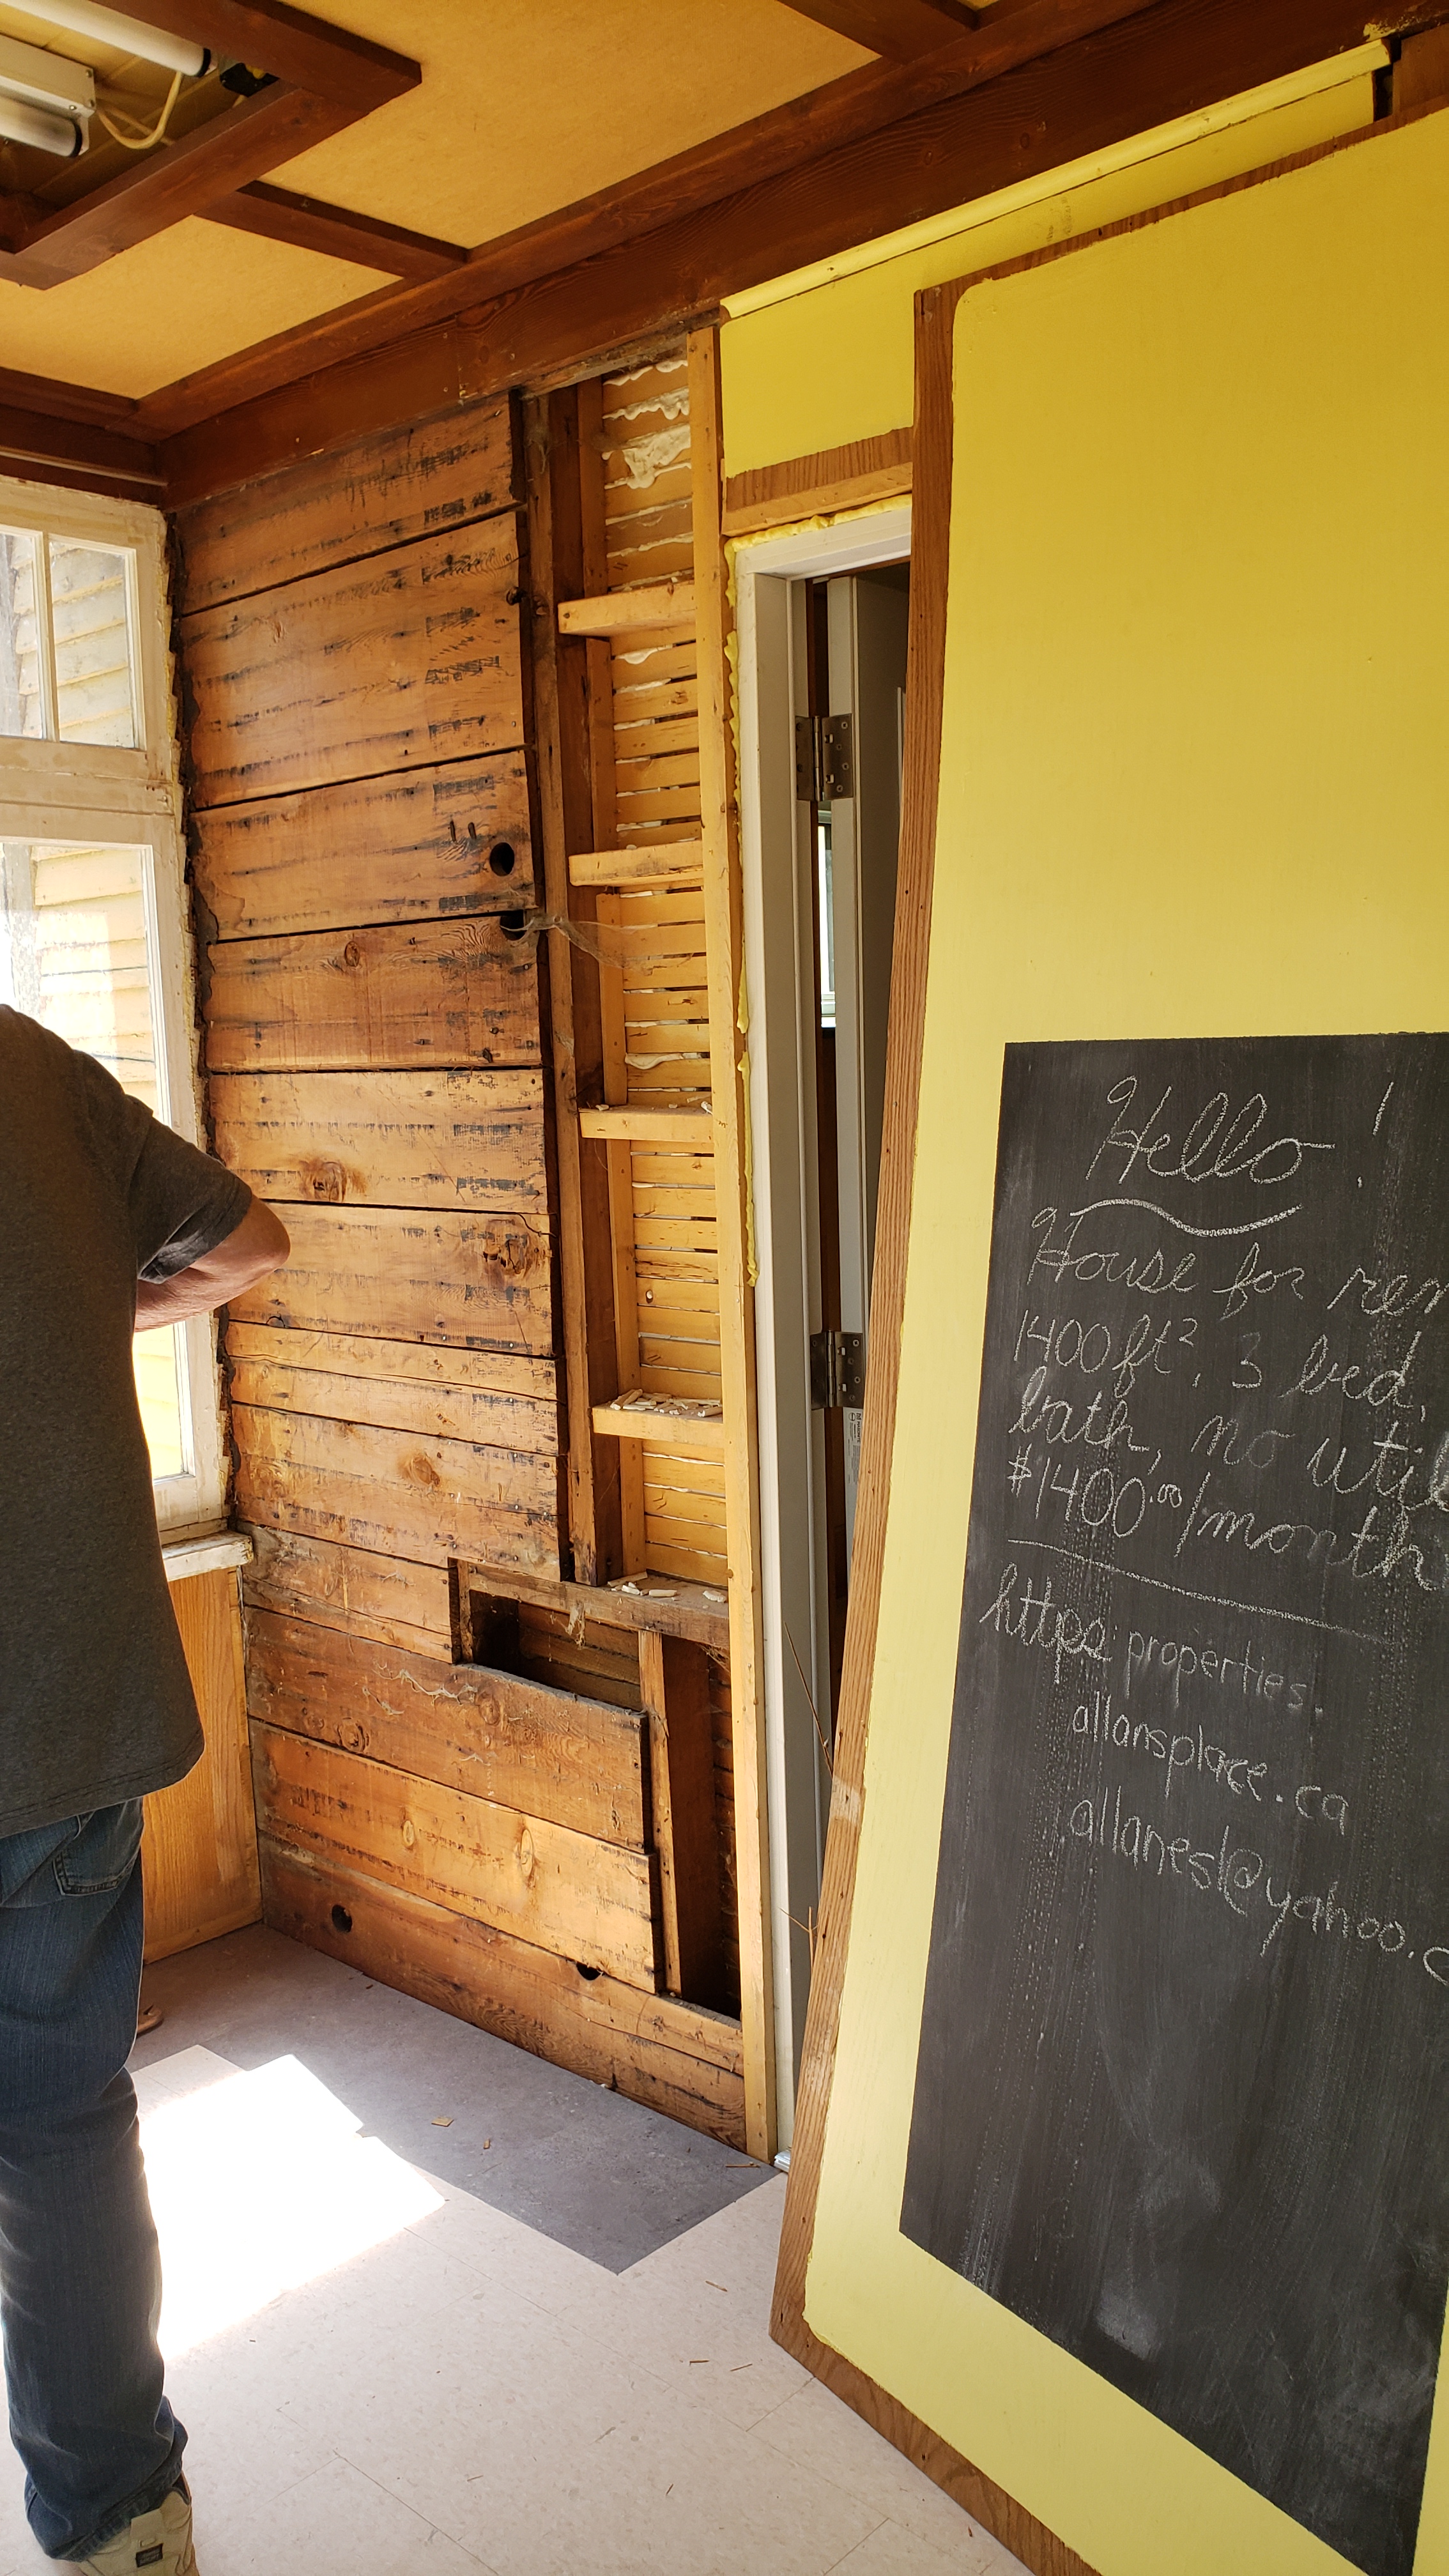 Hello !
House for ren
1400ft², 3 bed,
bath, no util
$1400.00/month
https properties.
allansplace.ca
allanesl@yahoo.c